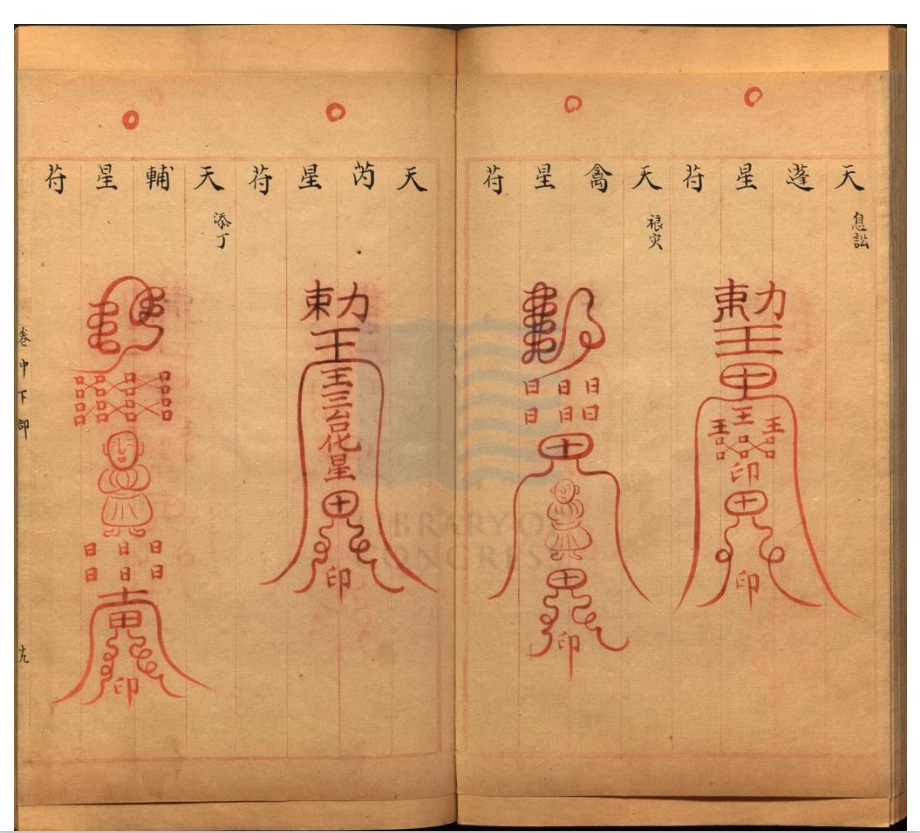 天蓬星苻
息訟
勅
王
王王王
印
印
天禽星苻
禳灾
日日日
日日日
印
天芮星苻
勅
王
王三台化星
印
天輔星苻
添丁
日日日
日日日
印
卷中下部
九
LIBRARY OF
CONGRESS